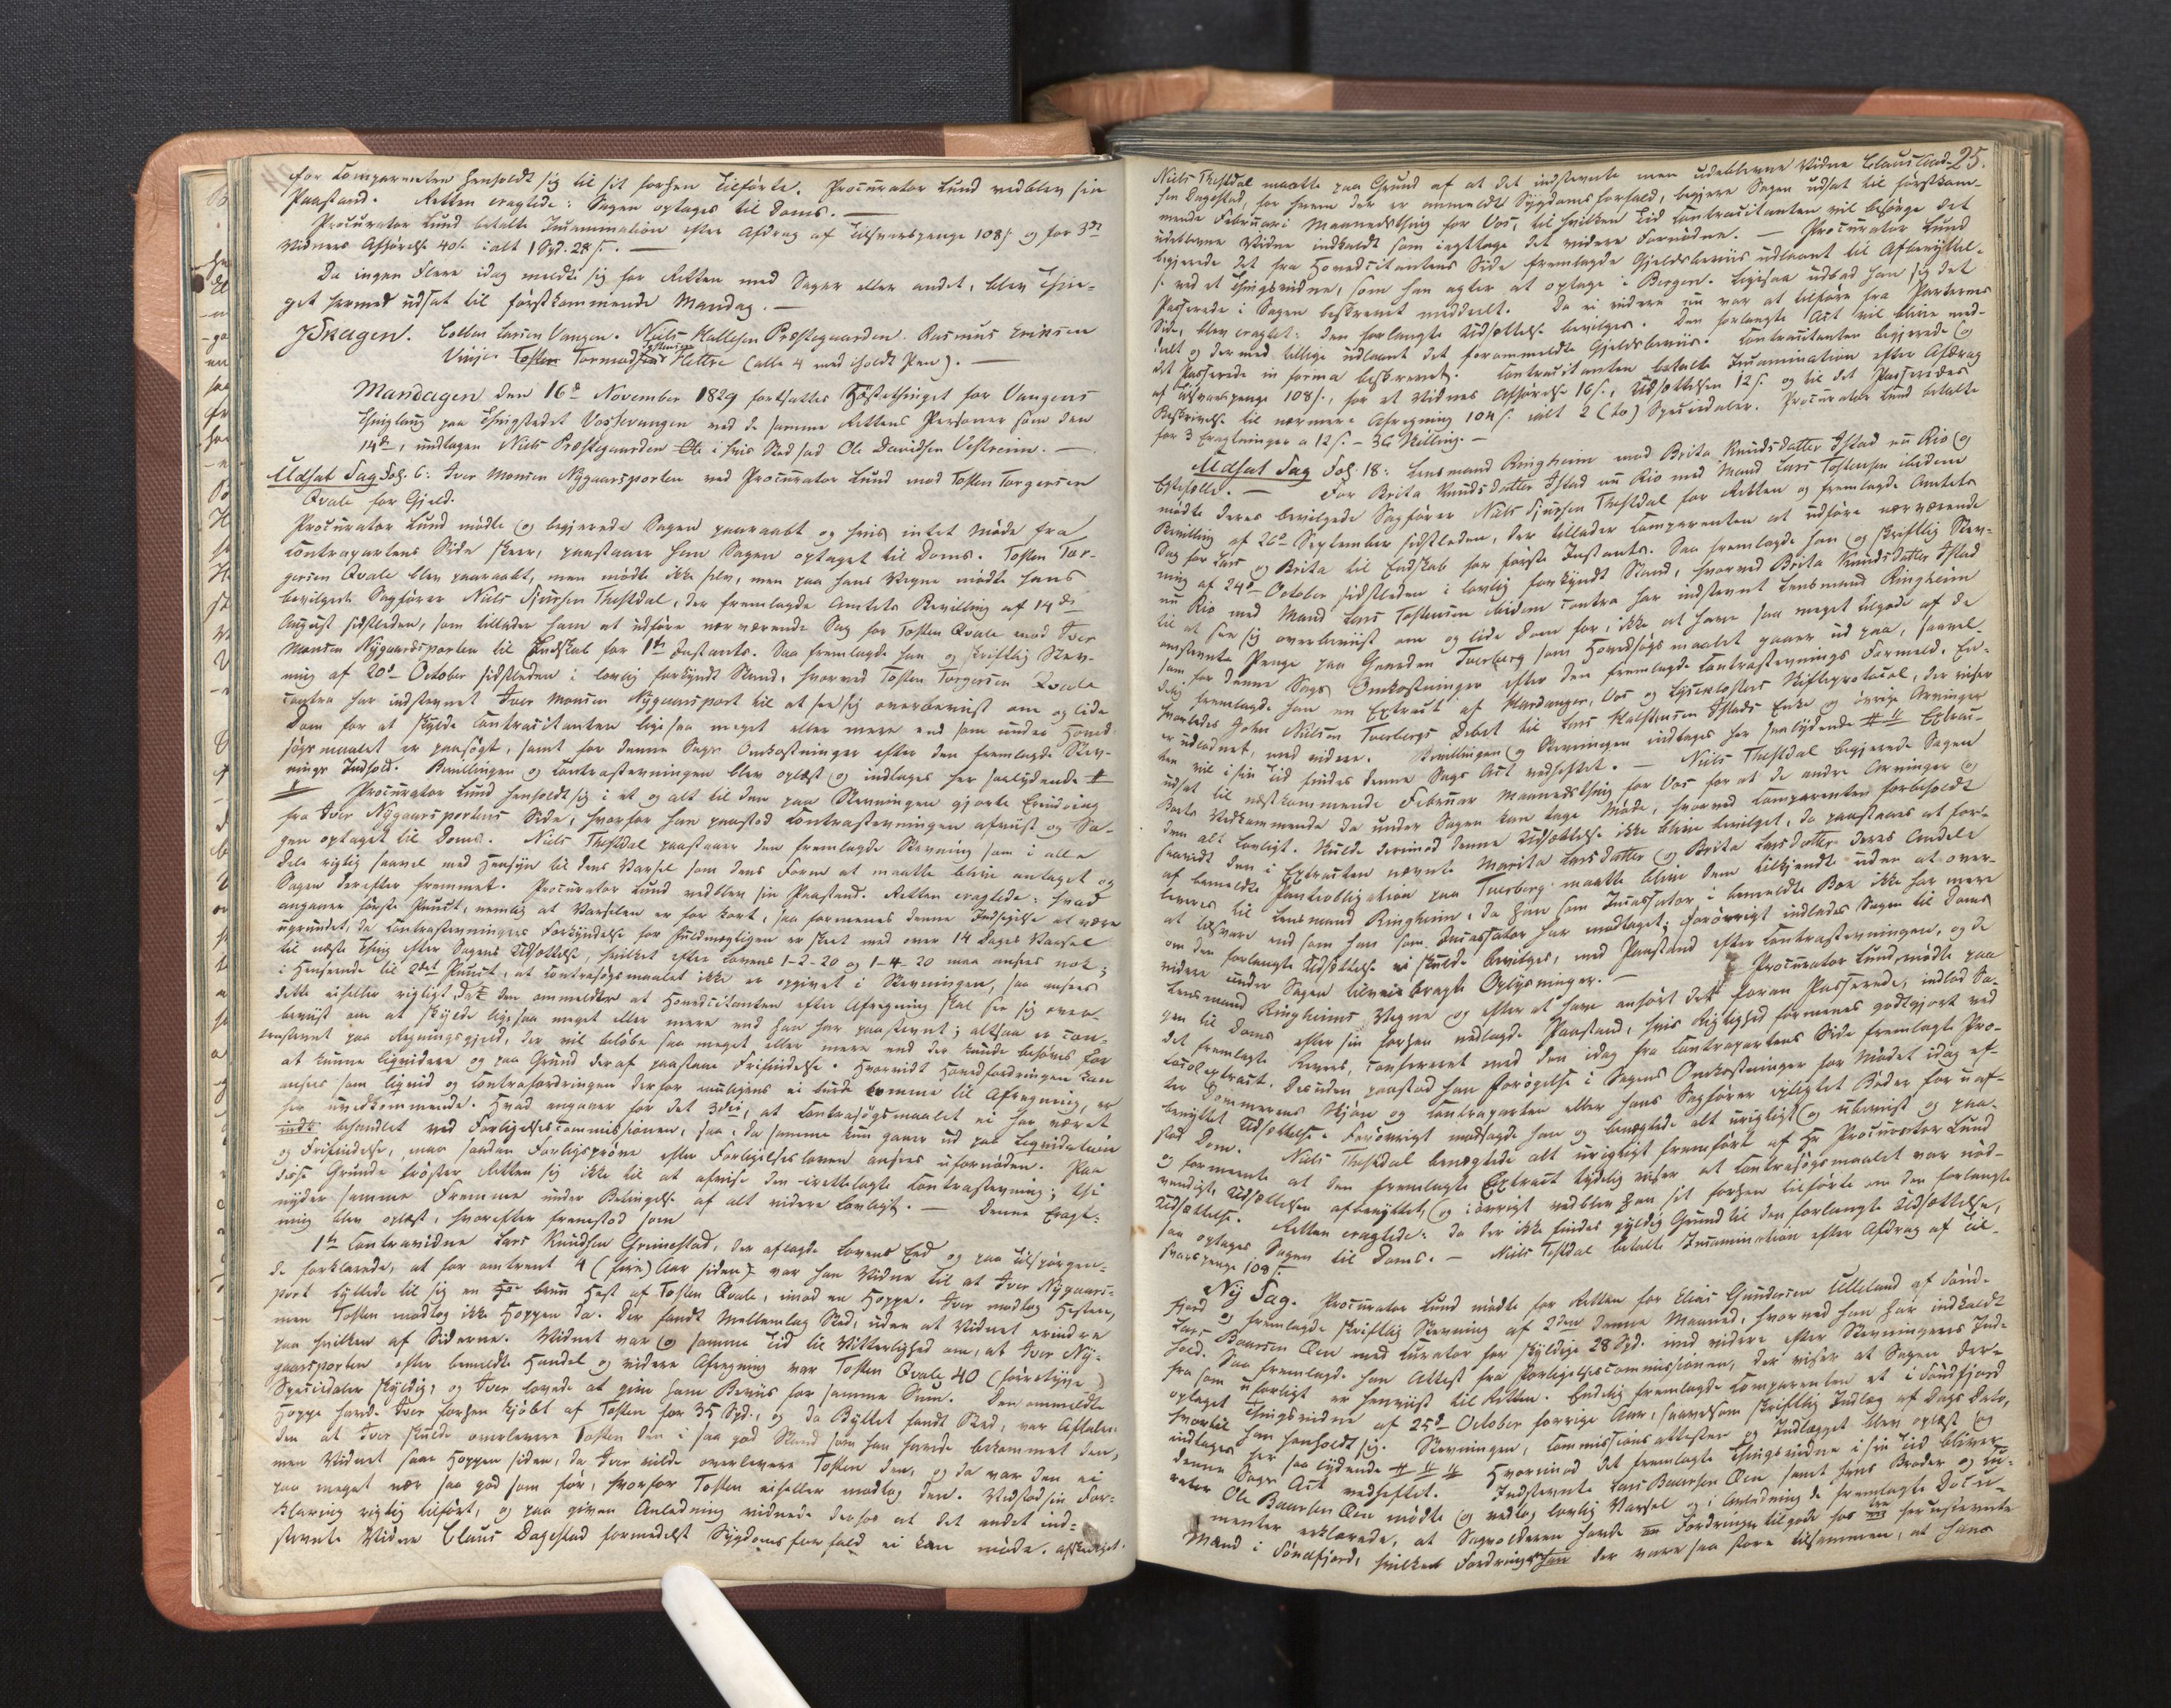 for Comparenten henholdt sig til sit forhen tilførte. Procurator Lund vedblev sin
Paastand. Retten eragtede: Sagen optages til Doms. —
Procurator Lund betalte Incammination efter Afdrag af Tilsvarspenge 108 s og for 3de
Vidners Afhørelse 40 s ialt 1 Spd. 28 s. —
Da ingen Flere idag meldte sig for Retten med Sager eller andet, blev Thin-
get hermed udsat til førstkommende Mandag. —
JSkagen. Colben Larsen Vangen. Niels Kallesen Præstegaarden. Rasmus Eriksen
Vinje Tosten Tormod Hettre (alle 4 med iholdt Pen). —
Mandagen den 16de November 1829 fortsattes Høstethinget for Vangens
Thinglaug paa Thingstedet Vossevangen med de samme Rettens Personer som den
14de, undtagen Niels Præstegaarden i hvis Sted sad Ole Davidsen Vestreim. —
Udsat Sag Fol. 6: Iver Monsen Nygaarsporten ved Procurator Lund mod Tosten Torgersen
Qvale for Gjeld.
Procurator Lund mødte og begjerede Sagen paaraabt og hvis intet Møde fra
Contrapartens Side skeer, paastaaer han Sagen optaget til Doms. Tosten Tor-
gersen Qvale blev paaraabt, men mødte ikke selv, men paa hans Vegne mødte hans
bevilgede Sagfører Niels Sjursen Thestdal, der fremlagde Amtets Bevilling af 14de
August sidstleden, som tillader ham at udføre nærværende Sag for Tosten Qvale mod Iver
Monsen Nygaardsporten til Endskab for 1ste Instants. Saa fremlagde han og skriftlig Stev-
ning af 20de October sidstleden i lovlig forkyndt Stand, hvorved Tosten Torgersen Qvale
contra har indstevnet Iver Monsen Nygaarsport til at see sig overbeviist om og lide
Dom for at skylde Contracitanten ligesaa meget eller mere end som under Hoved-
søgsmaalet er paasøgt, samt for denne Sags Omkostninger efter den fremlagde Stev-
nings Indhold. Bevillingen og Contrastevningen blev oplæst og indtages her saalydende #
# Procurator Lund henholdt sig i et og alt til den paa Stevningen gjorte Erindring
fra Iver Nygaarsportens Side, hvorfor han paastod Contrastevningen afviist og Sa-
gen optaget til Doms. Niels Thestdal paastaaer den fremlagde Stevning som i alle
Dele rigtig saavel med Hensyn til dens Varsel som dens Form at maatte blive antaget og
Sagen derefter fremmet. Procurator Lund vedblev sin Paastand. Retten eragtede: hvad
angaaer første Punct, nemlig at Varselen er for kort, saa formenes denne Indsigelse at være
ugrundet, da Contrastevningens Forkyndelse for Fuldmægtigen er skeet med over 14 Dages Varsel
til næste Thing efter Sagens Udsættelse, hvilket efter Lovens 1-2-20 og 1-4-20 maa ansees nok;
i Henseende til 2det Punct, at Contrasøgsmaalet ikke er opgivet i Stevningen, saa ansees
dette eiheller rigtigt, da den ommelder at Hovedcitanten efter Afregning skal see sig over-
beviist om at skylde ligesaa meget eller mere end han har paastevnt; altsaa er con-
trastevnt paa Regningsgjeld, der vil beløbe saa meget eller mere end der kunde behøves for
at kunne liqvidere og paa Grund deraf paastaae Frifindelse. Hvorvidt Hovedfordringen kan
ansees som liqvid og Contrafordringen derfor muligens ei burde komme til Afregning, er
her uvedkommende. Hvad angaaer for det 3die, at Contrasøgsmaalet ei har været
behandlet ved Forligelsescommissionen, saa, da samme kun gaaer ud paa Liqvidation
og Frifindelse, maa saadan Forligsprøve efter Forligelsesloven ansees ufornøden. Paa
disse Grunde trøster Retten sig ikke til at afvise den irettelagte Contrastevning; thi
nyder samme Fremme under Betingelse af alt videre lovligt. — Denne Eragt-
ning blev oplæst, hvorefter fremstod som
1ste Contravidne Lars Knudsen Grimestad, der aflagde Lovens Eed og paa Tilspørgen-
de forklarede, at for omtrent 4 (fire) Aar siden var han Vidne til at Iver Nygaars-
port byttede til sig en brun Hest af Tosten Qvale, imod en Hoppe. Iver modtog Hesten,
men Tosten modtog ikke Hoppen da. Der fandt Mellemlag Sted, uden at Vidnet erindre
paa hvilken af Siderne. Vidnet var og samme Tid til Vitterlighed om, at Iver Ny-
gaarsporten efter bemeldte Handel og videre Afregning var Tosten Qvale 40 (førretyve)
Speciedaler skyldig, og Iver lovede at give ham Beviis for samme Sum. Den ommeldte
Hoppe havde Iver forhen kjøbt af Tosten for 35 Spd., og da Byttet fandt Sted, var Aftalen
den at Iver skulde overlevere Tosten den i saa god Stand som han havde bekommet den,
men Vidnet saae Hoppen siden, da Iver vilde overlevere Tosten den, og da var den ei
paa meget nær saa god som før, hvorfor Tosten eiheller modtog den. Vedstod sin For-
klaring rigtig tilført, og paa given Anledning vidnede derhos at det andet ind-
stevnte Vidne Claus Dagestad formedelst Sygdomsforfald ei kan møde. Afskediget.
25.
Niels Thestdal maatte paa Grund af at det indstevnte men udeblevne Vidne Claus And-
sen Dagestad, for hvem der er anmeldt Sygdomsforfald, begjere Sagen udsat til førstkom-
mende Februari Maanedsthing for Vos, til hvilken Tid Contracitanten vil besørge det
udeblevne Vidne indkaldt som iagttage det videre Fornødne. — Procurator Lund
begjerede det fra Hovedcitantens Side fremlagde Gjeldsbeviis udlaant til Afbenyttel-
se ved et Thingsvidne, som han agter at optage i Bergen. Ligesaa udbad han sig det
Passerede i Sagen beskrevet meddeelt. Da ei videre nu var at tilføre fra Parternes
Side, blev eragtet: Den forlangte Udsættelse bevilges. Den forlangte Act vil blive med-
deelt og dermed tillige udlaant det forommeldte Gjeldsbeviis. Contracitanten begjerede og
det Passerede in forma beskrevet. Contracitanten betalte Incammination efter Afdrag
af Tilsvarspenge 108 s., for et Vidnes Afhørelse 16 s., Udsættelsen 12 s. og til det Passeredes
Beskrivelse til nærmere Afregning 104 s. ialt 2 (to) Speciedaler. Procurator Lund betalte
for 3 Eragtninger a 12 s. – 36 Skilling. —
Udsat Sag Fol. 18: Lensmand Ringheim mod Brita Knudsdatter Istad nu Rio og
Ægtefælle. — For Brita Knudsdatter Istad nu Rio med Mand Lars Tostensen ibidem
mødte deres bevilgede Sagfører Niels Sjursen Thestdal for Retten og fremlagde Amtets
Bevilling af 26de September sidstleden, der tillader Comparenten at udføre nærværende
Sag for Lars og Brita til Endskab for første Instants. Saa fremlagde han og skriftlig Stev-
ning af 24de October sidstleden i lovlig forkyndt Stand, hvorved Brita Knudsdatter Istad
nu Rio med Mand Lars Tostensen ibidem contra har indstevnt Lensmand Ringheim
til at see sig overbeviist om og lide Dom for, ikke at have saa meget tilgode af de
omstevnte Penge paa Gaarden Tverberg som Hovedsøgsmaalet gaaer ud paa, saavel-
som for denne Sags Omkostninger efter den fremlagde Contrastevnings Formeld. En-
delig fremlagde han en Extract af Hardanger, Vos og Lyseclosters Skifteprotocol, der viser
hvorledes John Nielsen Tverbergs Debet til Lars Kolbensen Istads Enke og øvrige Arvinger
er udlodnet, med videre. Bevillingen og Stevningen indtages her saalydende # # Extrac-
ten vil i sin Tid findes denne Sags Act vedheftet. — Niels Thestdal begjerede Sagen
udsat til næstkommende Februar Maanedsthing for Vos for at de andre Arvinger og
Boets Vedkommende da under Sagen kan tage Møde, hvorved Comparenten forbeholdt
dem alt Lovligt. Skulde derimod denne Udsættelse ikke blive bevilget, da paastaaes at for-
saavidt den i Extracten nævnte Marita Larsdatter og Brita Larsdatter deres Andele
af bemeldte Pantobligation paa Tverberg maatte blive dem tilkjendt uden at over-
leveres til Lensmand Ringheim, da han som Incassator i bemeldte Boe ikke har mere
at tilsvare end som han som Incassator har modtaget; forøvrigt indlodes Sagen til Doms
om den forlangte Udsættelse ei skulde bevilges, med Paastand efter Contrastevningen, og de
videre under Sagen tilveiebragte Oplysninger. — Procurator Lund mødte paa
Lensmand Ringheims Vegne og efter at have anhørt det foran Passerede, indlod Sa-
gen til Doms efter sin forhen nedlagde Paastand, hvis Rigtighed formenes godtgjort ved
det fremlagte Revers, confereret med den idag fra Contrapartens Side fremlagte Pro-
tocolextract. Desuden paastod han Forøgelse i Sagens Omkostninger for Mødet idag ef-
ter Dommerens Skjøn og Contraparten eller hans Sagfører ipligtet Bøder for uaf-
benyttet Udsættelse. Forøvrigt modsagde han og benægtede alt urigtigt og ubeviist og paa-
stod Dom. Niels Thestdal benægtede alt urigtigt fremført af Hr Procurator Lund
og formeente at den fremlagte Extract tydelig viser at Contrasøgsmaalet var nød-
vendigt, Udsættelsen afbenyttet, og iøvrigt vedblev han sit forhen tilførte om den forlangte
Udsættelse. Retten eragtede: da der ikke findes gyldig Grund til den forlangte Udsættelse,
saa optages Sagen til Doms. — Niels Testdal betalte Incamination efter Afdrag af Til-
svarspenge 108 s
Ny Sag. Procurator Lund mødte for Retten for Elias Gundersen Ulleland af Sønd-
fjord og fremlagde skriftlig Stevning af 2den denne Maaned, hvorved han har indkaldt
Lars Baarsen Øen med Curator for skyldige 28 Spd. med videre efter Stevningens Ind-
hold. Saa fremlagde han Attest fra Forligelsescommissionen, der viser at Sagen der-
fra som uforligt er henviist til Retten. Endelig fremlagde Comparenten et i Søndfjord
optaget Thingsvidne af 25de October forrige Aar, saavelsom skriftlig Indlæg af Dags Dato,
hvortil han henholdt sig. Stevningen, Commissionsattesten og Indlægget blev oplæst og
indtages her saa lydende # # # Hvorimod det fremlagte Thingsvidne i sin Tid bliver
denne Sags Act vedheftet. Indstevnte Lars Baarsen Øen samt hans Broder og Cu-
rator Ole Baarsen Øen mødte og vedtog lovlig Varsel og i Anledning de fremlagte Docu-
menter erklærede, at Sagvolderen havde Fordringer tilgode hos tre herunstevnte
Mænd i Søndfjord, hvilket Fordringer der vare saa store tilsammen, at hans